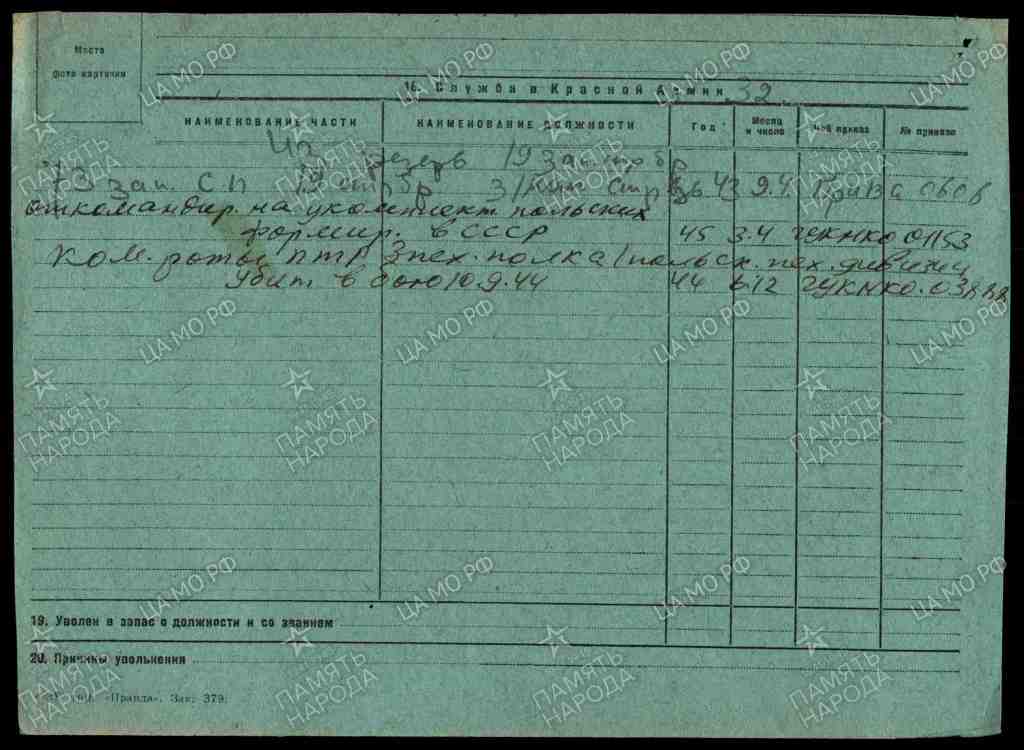 Место
фото карточки
16. Служба в Красной Армии 32.
НАИМЕНОВАНИЕ ЧАСТИ НАИМЕНОВАНИЕ ДОЛЖНОСТИ Год Месяц и число Чей приказ № приказа
резерв 19 зап. стр бр
73 зап. СП 19 стр бр 43 9.4. 0608
откомандир. на укомплект. польских
формир. в СССР 45 3.4 ГУКНКО 01153
Ком. роты ПТР 3 пех. полка 1 польск. пех. дивизии
Убит в бою 10.9.44 44 6.12 ГУКНКО.
19. Уволен в запас с должности и со званием
20. Причины увольнения
«Правда». Зак. 379.
ЦА МО РФ
ПАМЯТЬ
НАРОДА